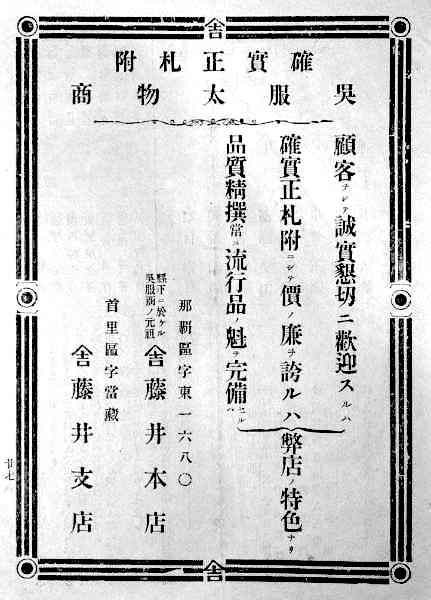 確實正札附
呉服太物商
顧客ヲシテ誠實懇切ニ歡迎スルハ
確實正札附ニシテ價ノ廉ヲ誇ルハ
品質精撰常ニ流行品ノ魁ヲ完備セルハ
弊店ノ特色ナリ
那覇區字東一六八〇
縣下ニ於ケル
呉服商ノ元祖
舎藤井本店
首里區字當藏
舎藤井支店
廿七